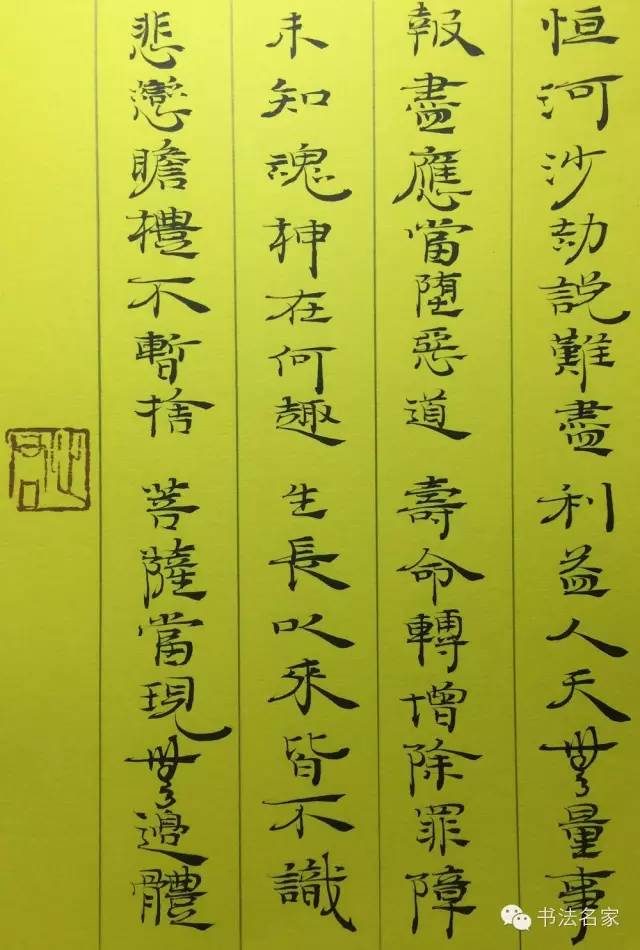 恒河沙劫説難盡 利益人天無量事
報盡應當墮惡道 壽命轉增除罪障
未知魂神在何趣 生長以來皆不識
悲戀瞻禮不暫捨 菩薩當現無邊體
书法名家